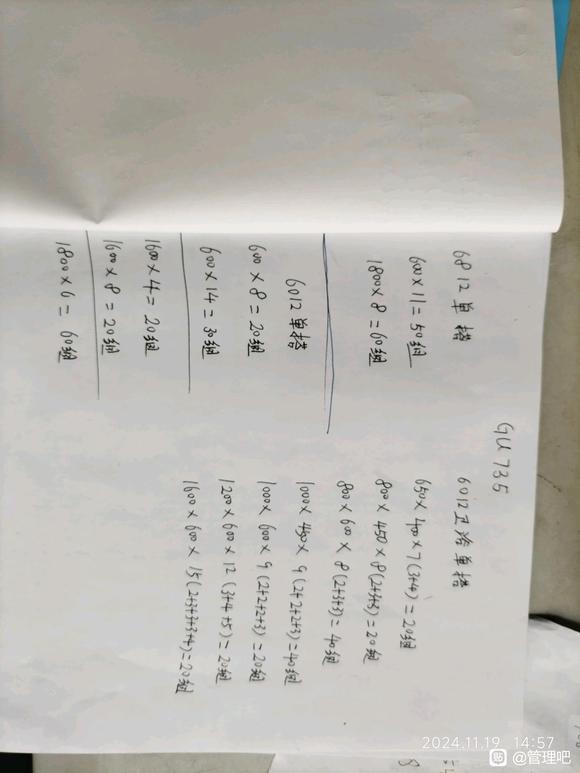 GU735
6812单搭
600×11=50组
1800×8=60组
6012单搭
600×8=20组
600×14=30组
1600×4=20组
1600×8=20组
1800×6=60组
6012卫浴单搭
650×400×7(3+4)=20组
800×450×8(2+3+3)=20组
800×600×8(2+3+3)=40组
1000×450×9(2+2+2+3)=40组
1000×600×9(2+2+2+3)=20组
1200×600×12(3+4+5)=20组
1600×600×15(2+3+3+3+4)=20组
2024.11.19 14:57
贴 @管理吧
8